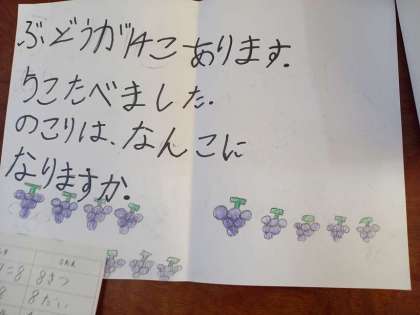 ぶどうが14こあります.
5こたべました.
のこりは、なんこに
なりますか.
8さつ